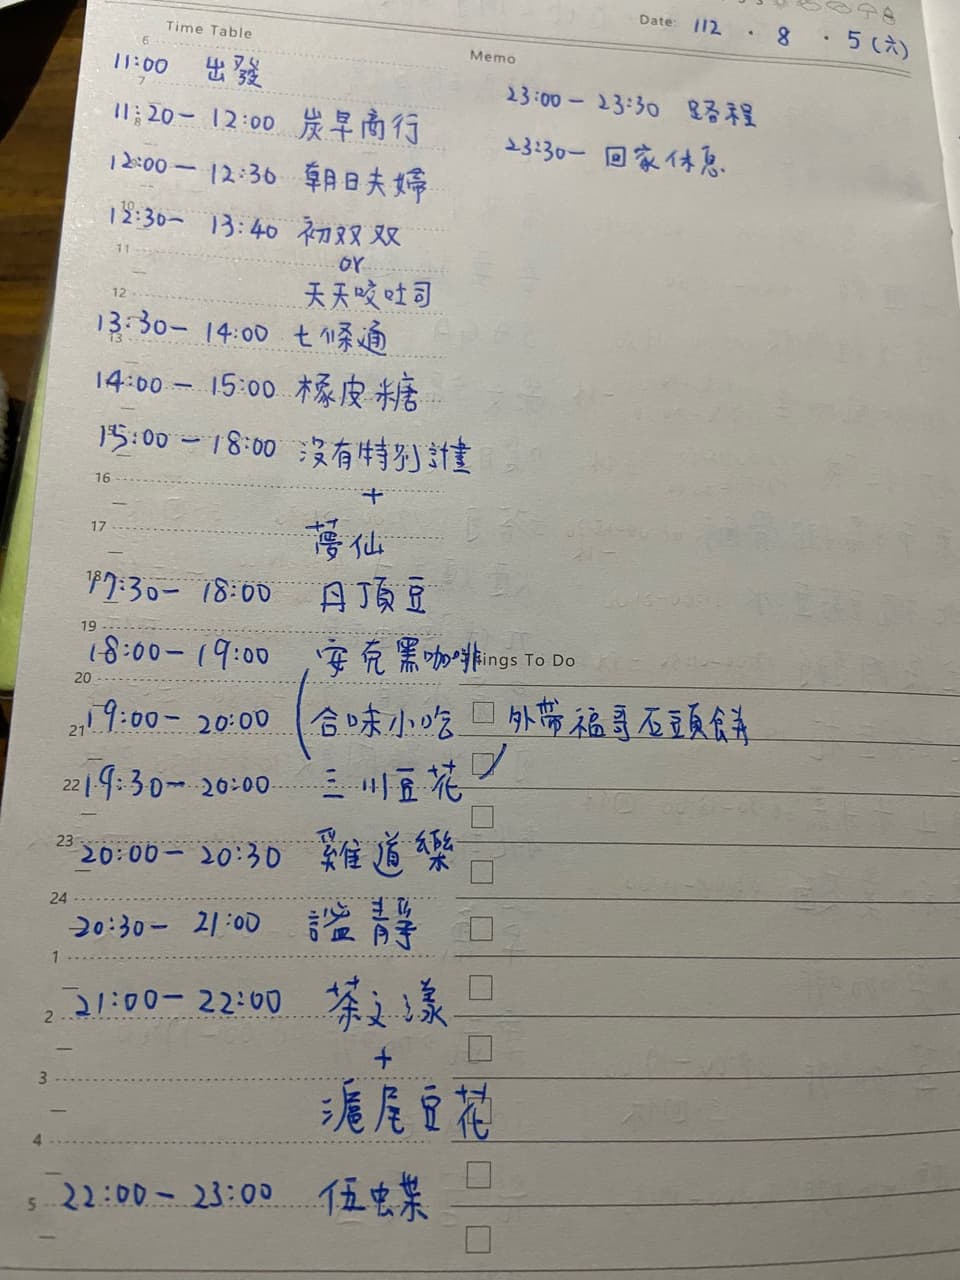 Time Table
Date: 112 . 8 . 5 (六)
Memo
11:00 出發
11:20 - 12:00 炭早商行
12:00 - 12:30 朝日夫婦
12:30 - 13:40 初双双
or
天天咬吐司
13:30 - 14:00 七條通
14:00 - 15:00 橡皮糖
15:00 - 18:00 沒有特別計畫
+
夢仙
17:30 - 18:00 丹頂豆
18:00 - 19:00 安克黑咖啡
19:00 - 20:00 合味小吃
19:30 - 20:00 三川豆花
20:00 - 20:30 雞道樂
20:30 - 21:00 謐靜
21:00 - 22:00 茶文漾
+
滬尾豆花
22:00 - 23:00 伍虫葉
23:00 - 23:30 路程
23:30 - 回家休息
ings To Do
外帶福哥石頭餅
6
7
8
10
11
12
13
16
17
18
19
20
21
22
23
24
1
2
3
4
5